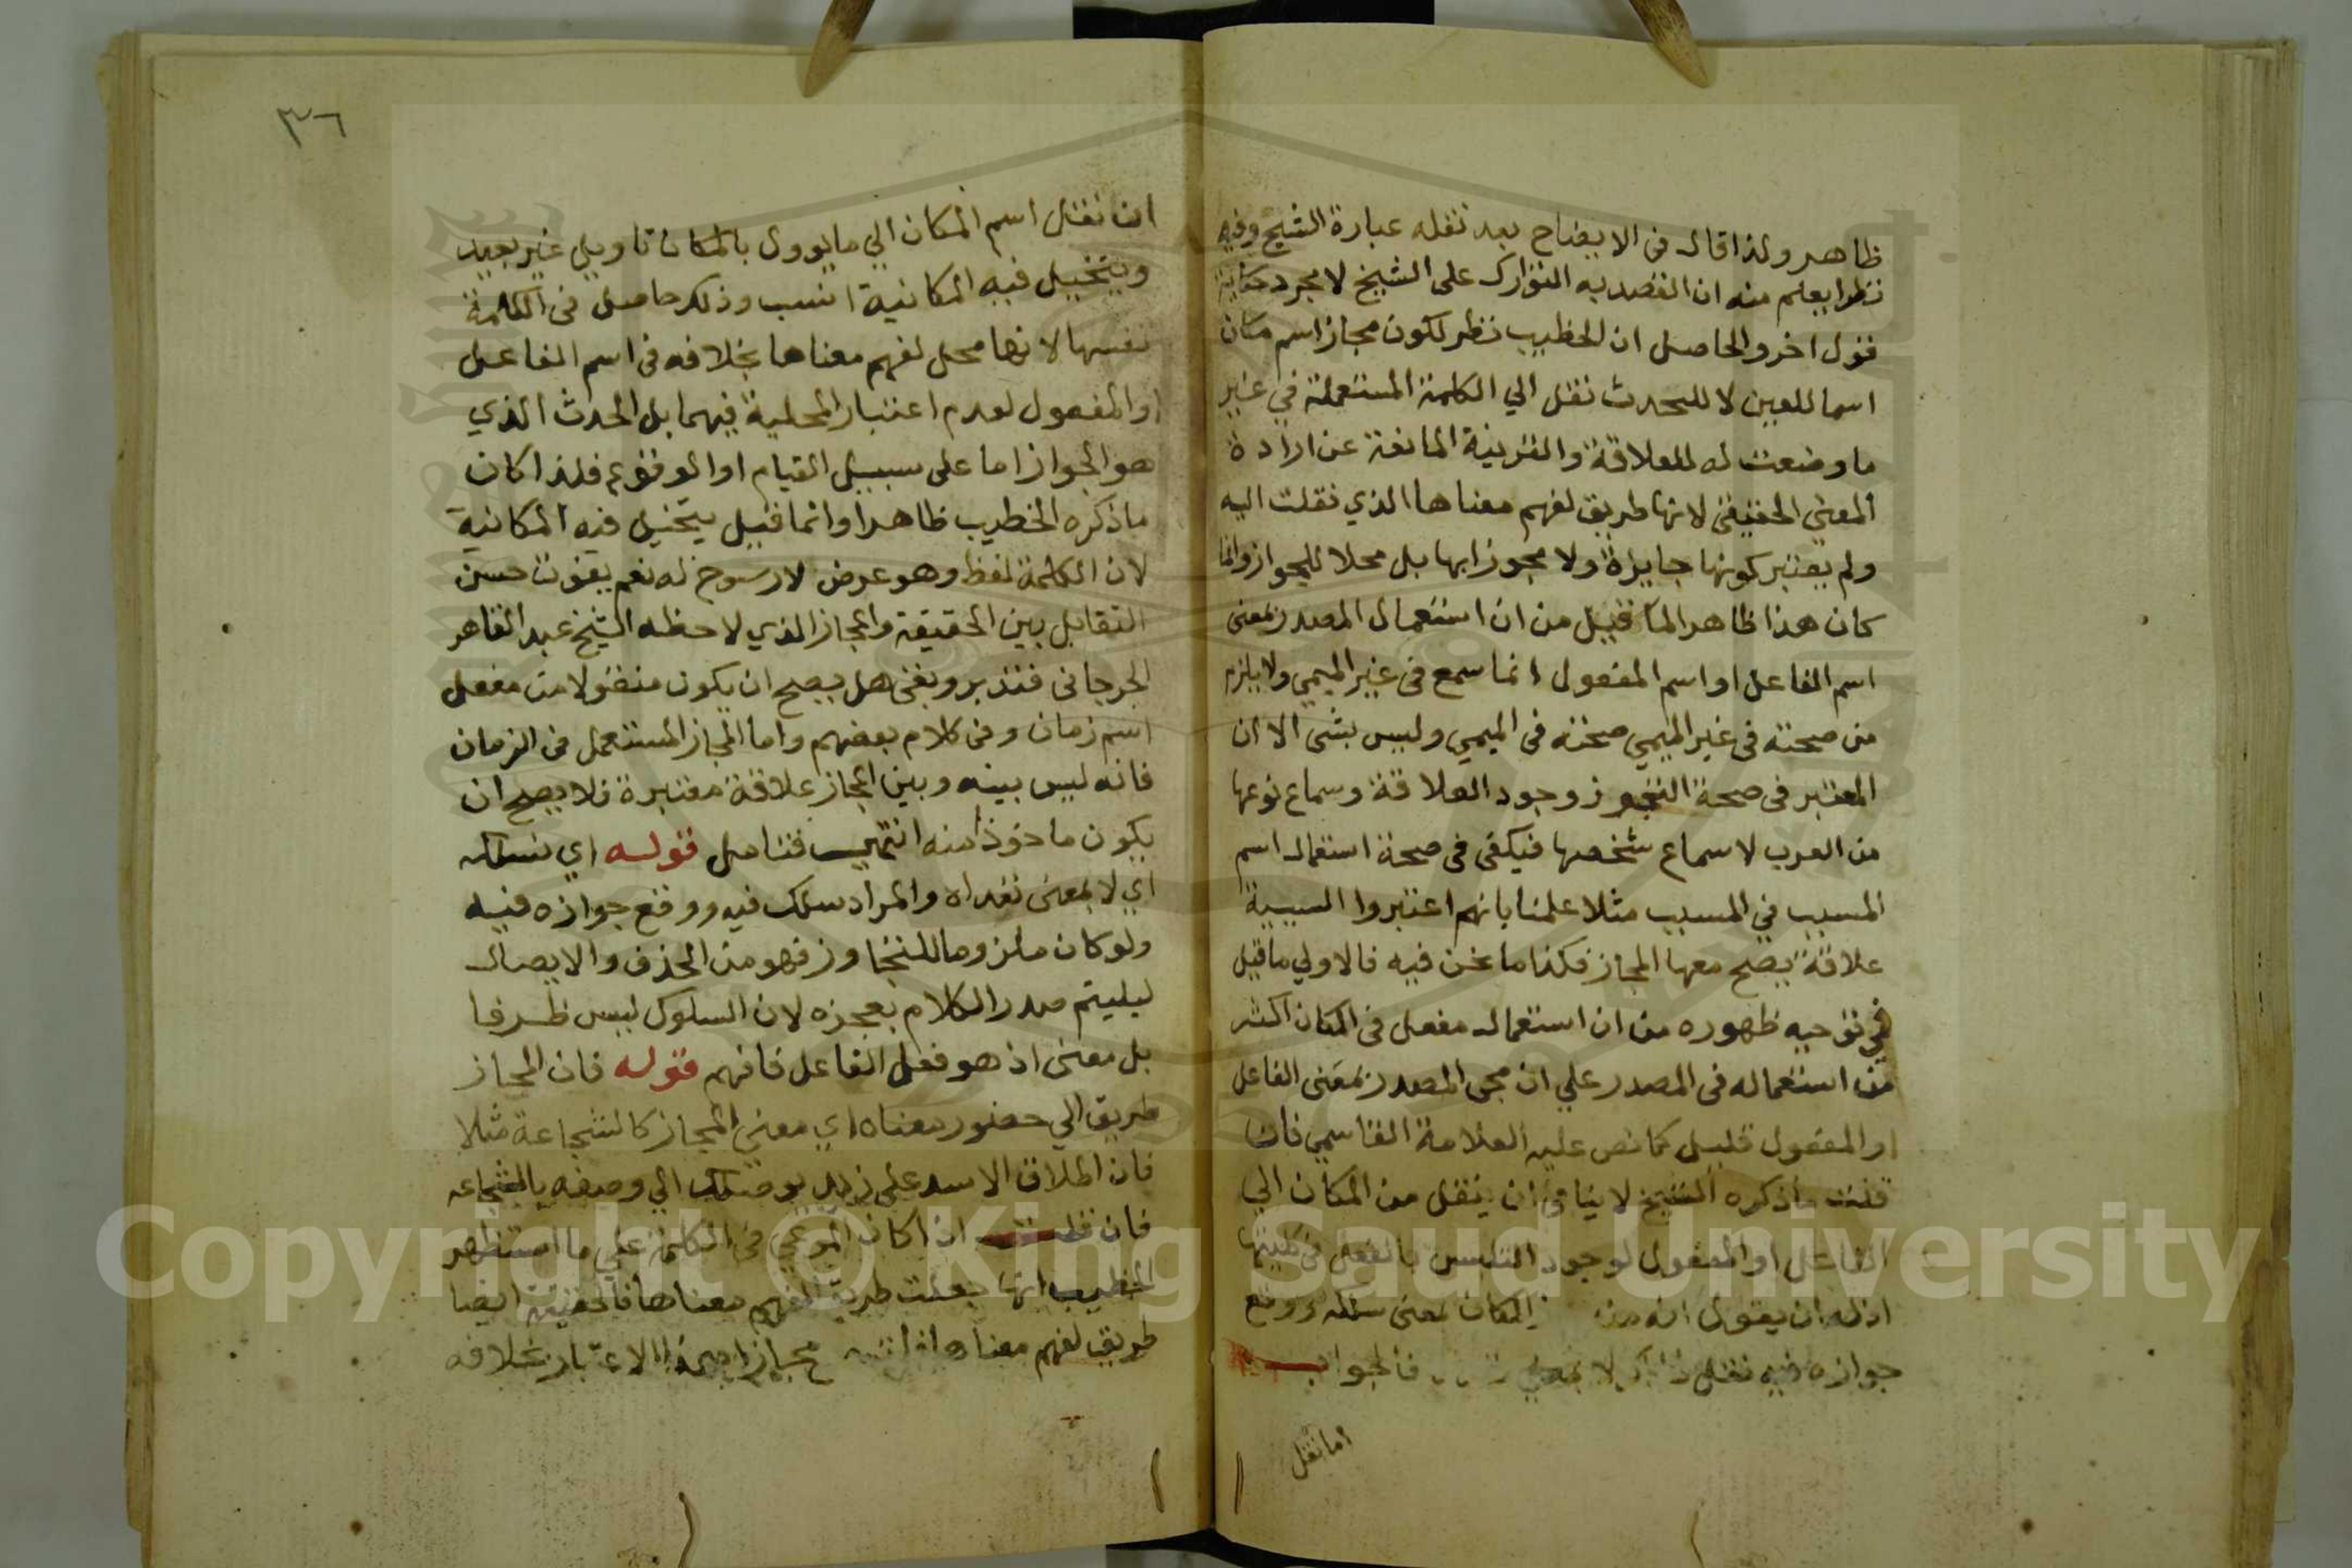 ظاهر ولذا قال فى الايضاح بعد نقله عبارة الشيخ وفيه
نظرا يعلم منه ان القصد به التوارك على الشيخ لا مجرد حكاية
قول اخر والحاصل ان للخطيب نظر لكون مجاز اسم مكان
اسما للعين لا للحدث نقل الي الكلمة المستعملة في غير
ما وضعت له للعلاقة والقرينة المانعة عن ارادة
المعني الحقيقى لانها طريق لفهم معناها الذي نقلت اليه
ولم يعتبر كونها جايزة ولا مجوزا بها بل محلا للجواز وانما
كان هذا ظاهرا لما قيل من ان استعمال المصدر بمعنى
اسم الفاعل او اسم المفعول انما سمع فى غير الميمي ولا يلزم
من صحته فى غير الميمي صحته فى الميمي وليس بشى الا ان
المعتبر فى صحة التجوز وجود العلاقة وسماع نوعها
من العرب لا سماع شخصها فيكفى فى صحة استعمال اسم
المسبب في السبب مثلا علمنا بانهم اعتبروا السببية
علاقة يصح معها المجاز فكذا ما نحن فيه فالاولي ما قيل
في توجيه ظهوره من ان استعمال مفعل فى المكان اكثر
من استعماله فى المصدر علي ان مجى المصدر بمعنى الفاعل
او المفعول قليل كما نص عليه العلامة القاسمي فان
قلت ما ذكره الشيخ لا ينافى ان ينقل من المكان الي
الفاعل او المفعول لوجود التلبس بالفعل فى كليتها
اذ له ان يقول انه من المكان بمعنى سلكه ووقع
جوازه فيه نقل لا بمعنى فالجواب
اما نقل
٣٦
ان نقل اسم المكان الي ما يوول بالمكان تاويل غير بعيد
ويتخيل فيه المكانية انسب وذلك حاصل فى الكلمة
نفسها لانها محل لفهم معناها بخلافه فى اسم الفاعل
او المفعول لعدم اعتبار المحلية فيهما بل الحدث الذي
هو الجواز اما على سبيل القيام او الوقوع فلذا كان
ما ذكره الخطيب ظاهرا وانما قيل يتخيل فيه المكانية
لان الكلمة لفظ وهو عرض لا رسوخ له نعم يفوت حسن
التقابل بين الحقيقة والمجاز الذي لاحظه الشيخ عبد القاهر
الجرجانى فتدبر وبقى هل يصح ان يكون منقولا من مفعل
اسم زمان وفى كلام بعضهم واما المجاز المستعمل فى الزمان
فانه ليس بينه وبين المجاز علاقة معتبرة فلا يصح ان
يكون ماخوذا منه انتهي فتامل قوله اي نسلكه
اي لا بمعنى تعداه والمراد سلك فيه ووقع جوازه فيه
ولو كان ملزوما للتجاوز فهو من الحذف والايصال
ليليتم صدر الكلام بعجزه لان السلوك ليس ظرفا
بل معنى اذ هو فعل الفاعل فافهم قوله فان المجاز
طريق الي حضور معناه اي معني المجاز كالشجاعة مثلا
فان اطلاق الاسد على زيد يوصلك الي وصفه بالشجاعه
فان قلت اذا كان المرعي فى الكلمة علي ما استظهر
الخطيب انها جعلت طريق لفهم معناها فالحقيقة ايضا
طريق لفهم معناها مجازا بهذا الاعتبار بخلافه
Copyright © King Saud University